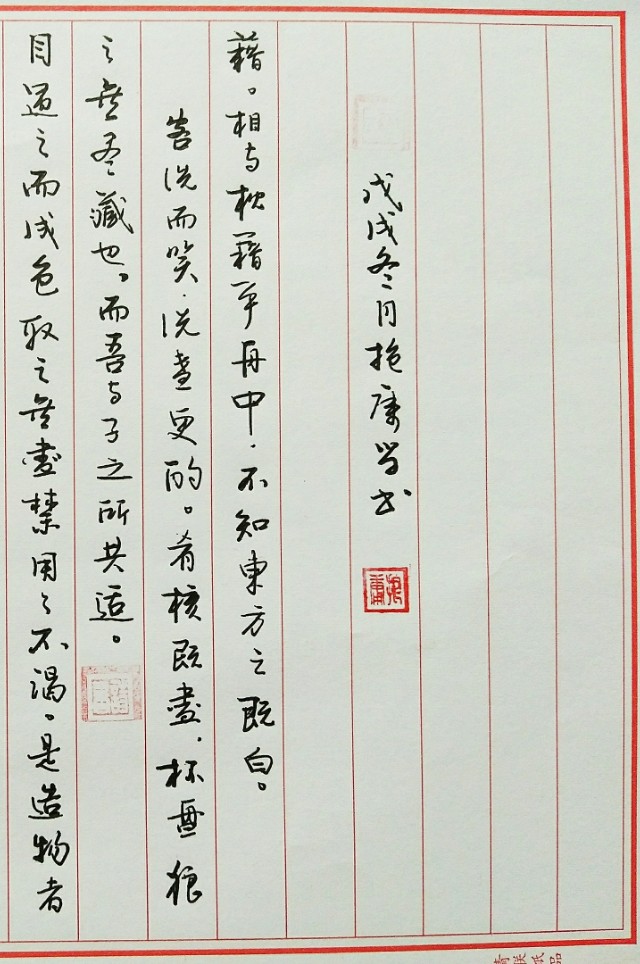 目遇之而成色取之無盡禁用之不渴。是造物者
之無尽藏也。而吾与子之所共适。
客洗而笑.洗盞更酌。肴核既盡.杯盤狼
藉。相与枕藉乎舟中.不知東方之既白。
戊戌冬月康学书